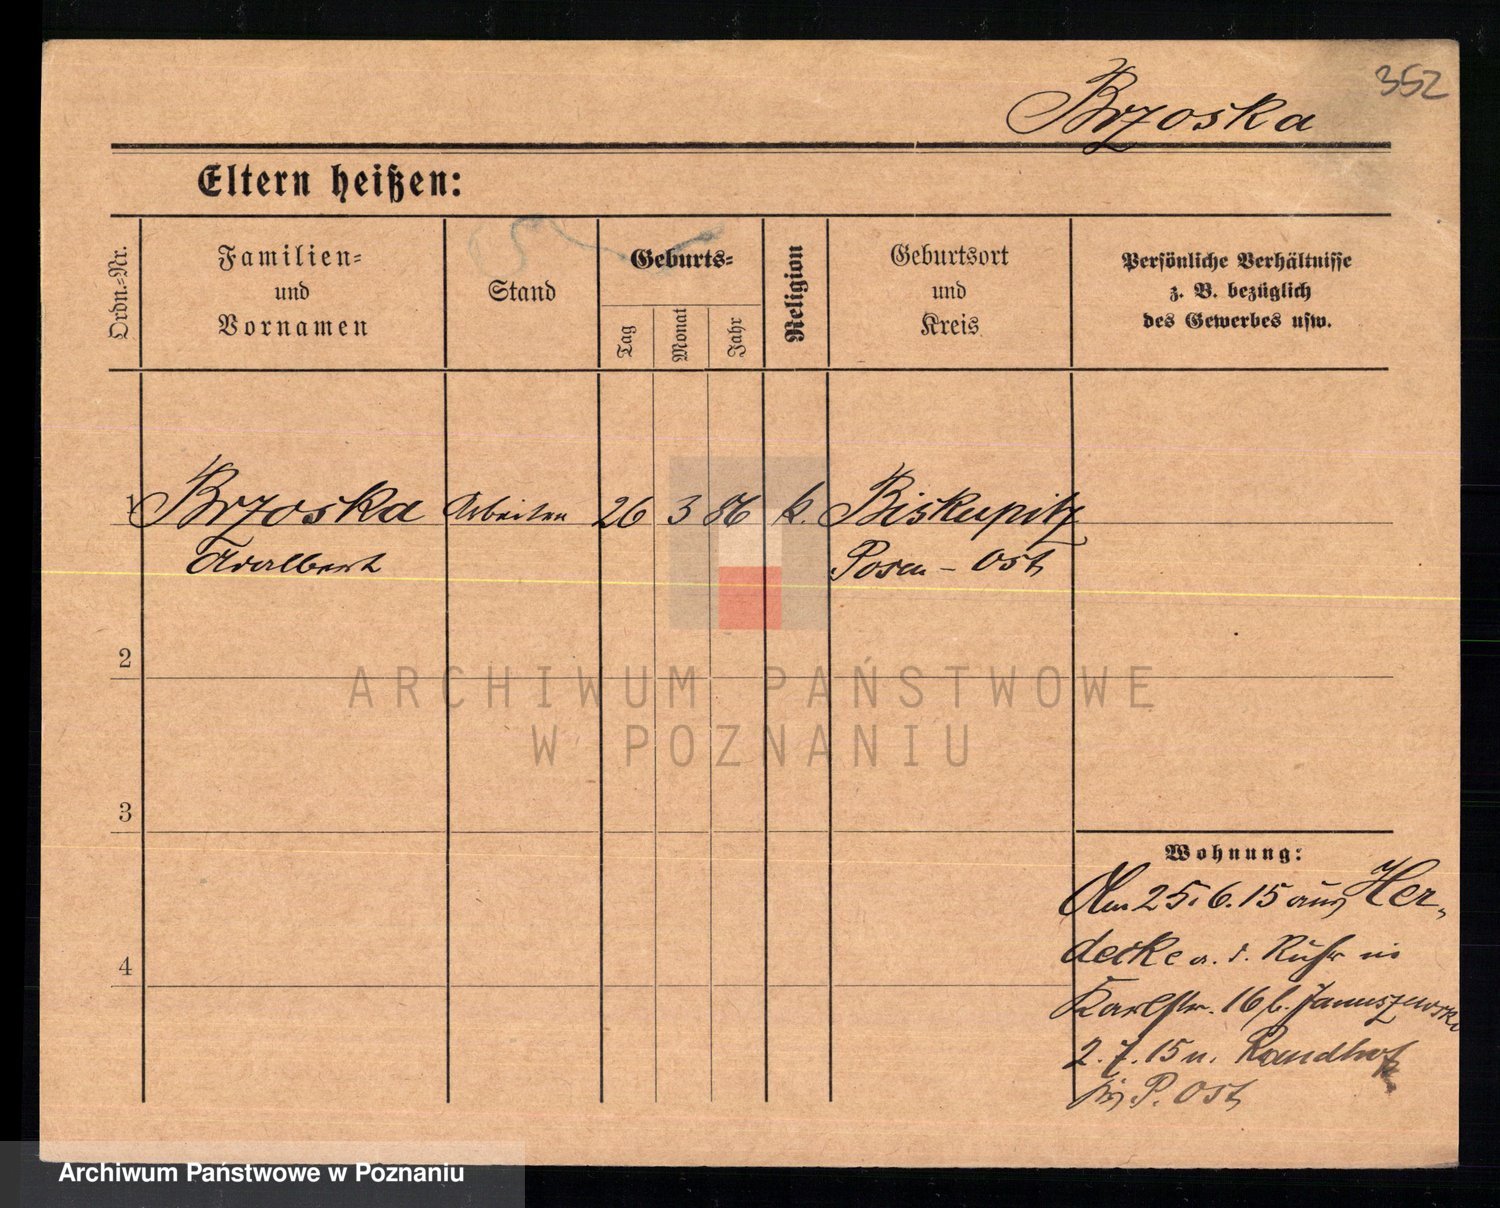 352
Brzoska
Eltern heißen:
Ordn.-Nr.
Familien-
und
Vornamen
Stand
Geburts-
Tag
Monat
Jahr
Religion
Geburtsort
und
Kreis
Persönliche Verhältnisse
z. B. bezüglich
des Gewerbes usw.
1 Brzoska Arbeiter 26 3 86 k. Biskupitz
Adalbert Posen - Ost
2
ARCHIWUM PAŃSTWOWE
W POZNANIU
3
Wohnung:
Am 25.6.15 aus Her-
decke a. d. Ruhr in
4
Karlstr. 16 b. Januszewski
2. 7. 15 n.
P. Ost
Archiwum Państwowe w Poznaniu